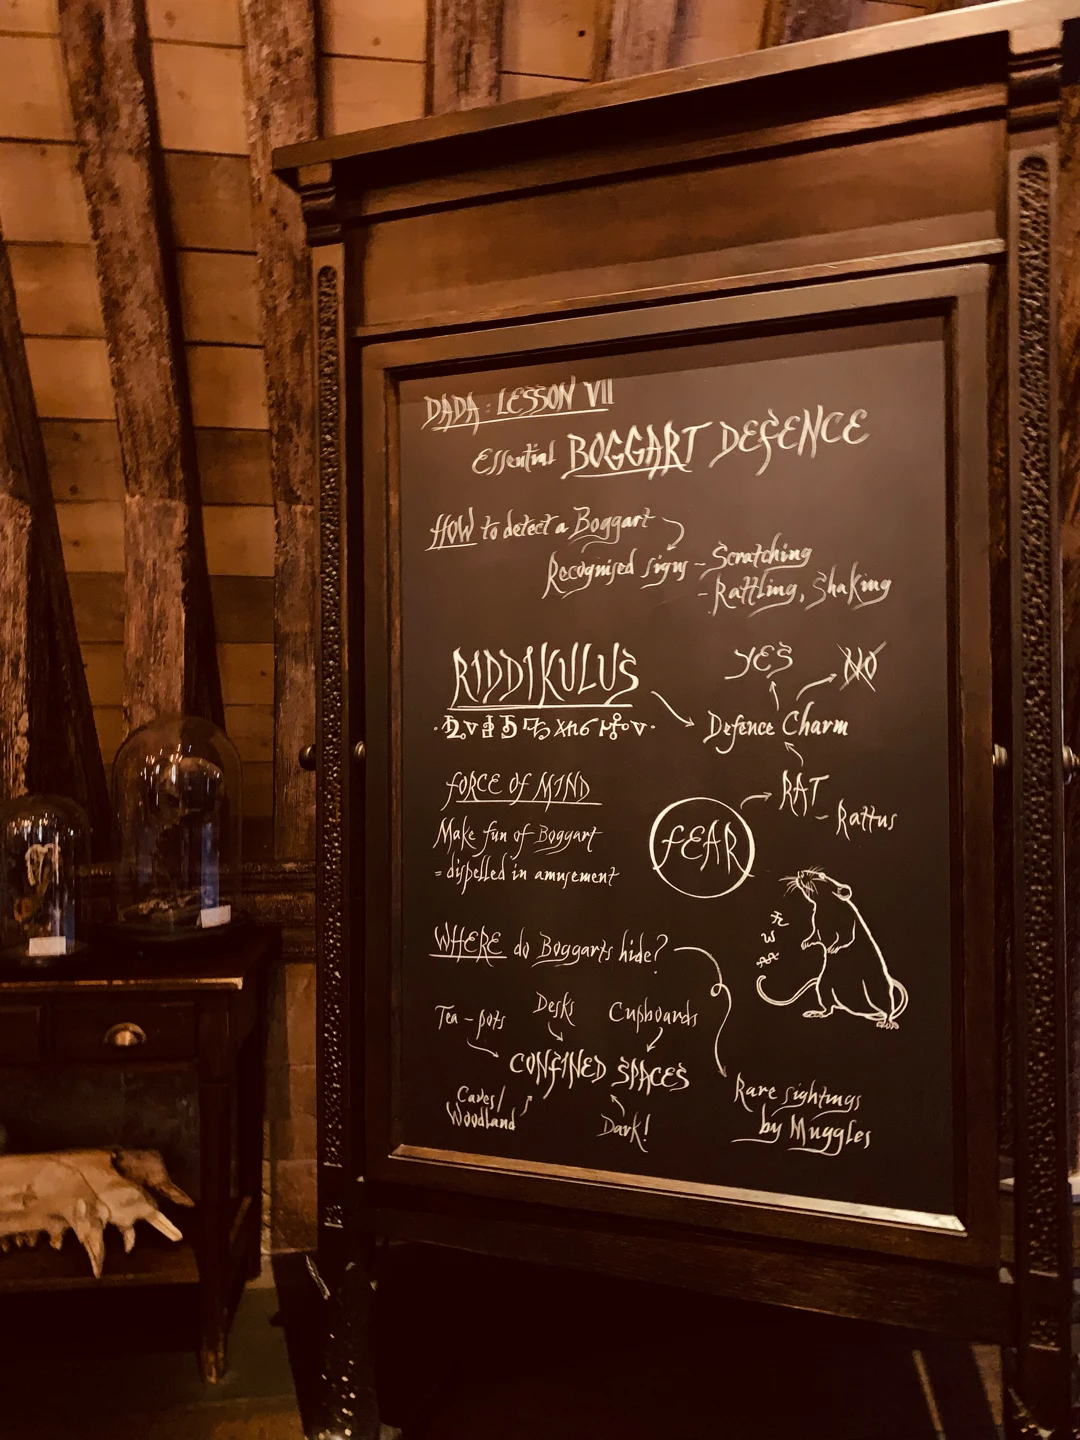 DADA: LESSON VII
Essential BOGGART DEFENCE
HOW to detect a Boggart
Recognised signs - Scratching
- Rattling, Shaking
RIDDIKULUS
YES
NO
Defence Charm
FORCE OF MIND
Make fun of Boggart
= dispelled in amusement
FEAR
RAT - Rattus
WHERE do Boggarts hide?
Tea-pots
Desks
Cupboards
CONFINED SPACES
Caves/
Woodland
Dark!
Rare sightings
by Muggles